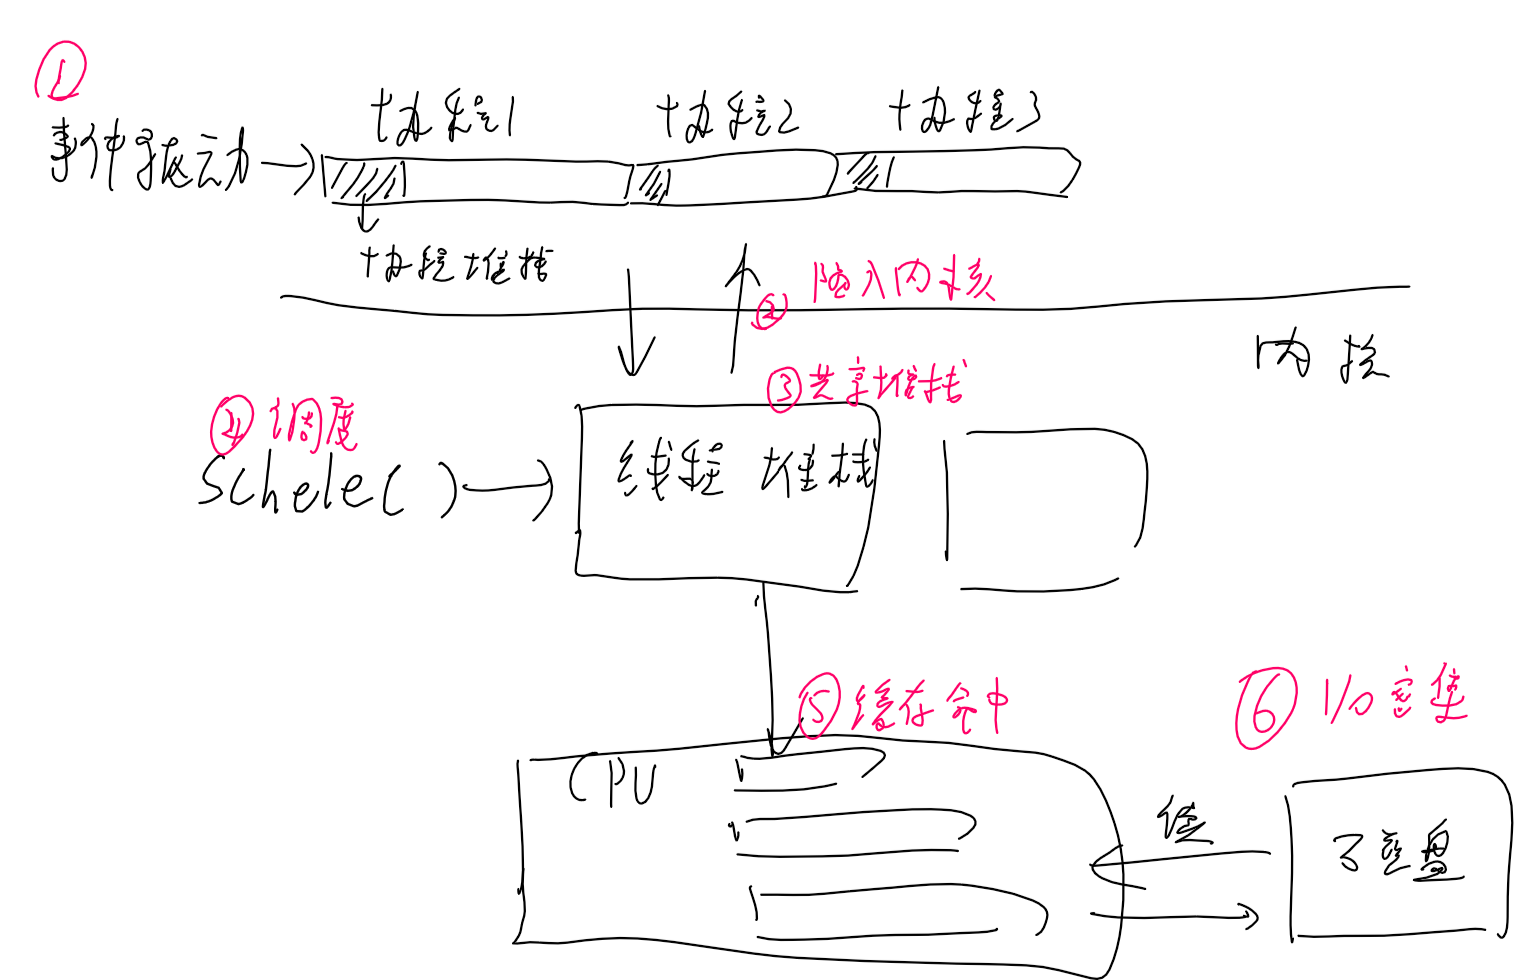 ①
事件驱动
协程1
协程2
协程3
协程堆栈
② 陷入内核
内核
③ 共享堆栈
④ 调度
Schele()
线程 堆栈
⑤ 缓存命中
⑥ I/O密集
CPU
值